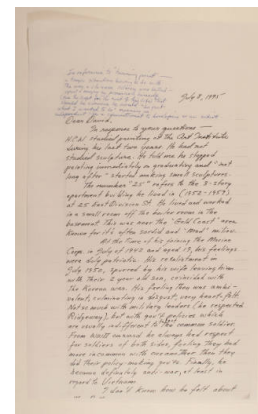 In reference to "turning point" —
July 8, 1995
Dear David,
In response to your questions —
H.C.W. studied painting at the Art Institute
during his last two years. He had not
studied sculpture. He told me he stopped
painting immediately on graduating and "not
long after" started making small sculptures.
The number "25" refers to the 3-story
apartment building he lived in (1952-1957)
at 25 East Division St. He lived and worked
in a small room off the boiler room in the
basement. This was near the "Gold Coast" area
known for its often sordid and "mad" milieu.
At the time of his joining the Marine
Corps in July of 1942 and aged 19, his feelings
were truly patriotic. His re-enlistment in
July 1950, spurred by his wife leaving him
with their 2 year old son, coincided with
the Korean war. His feeling then was ambi-
valent, culminating in disgust, very heartfelt.
Not so much with military leaders (he respected
Ridgeway), but with gov't policies which
are usually indifferent to the common soldier.
From WWII onward he always had respect
for soldiers of both sides, feeling they had
more in common with one another than they
did their policy making gov'ts. Finally, he
became definitely anti-war, at least in
regard to Vietnam.
I don't know how he felt about